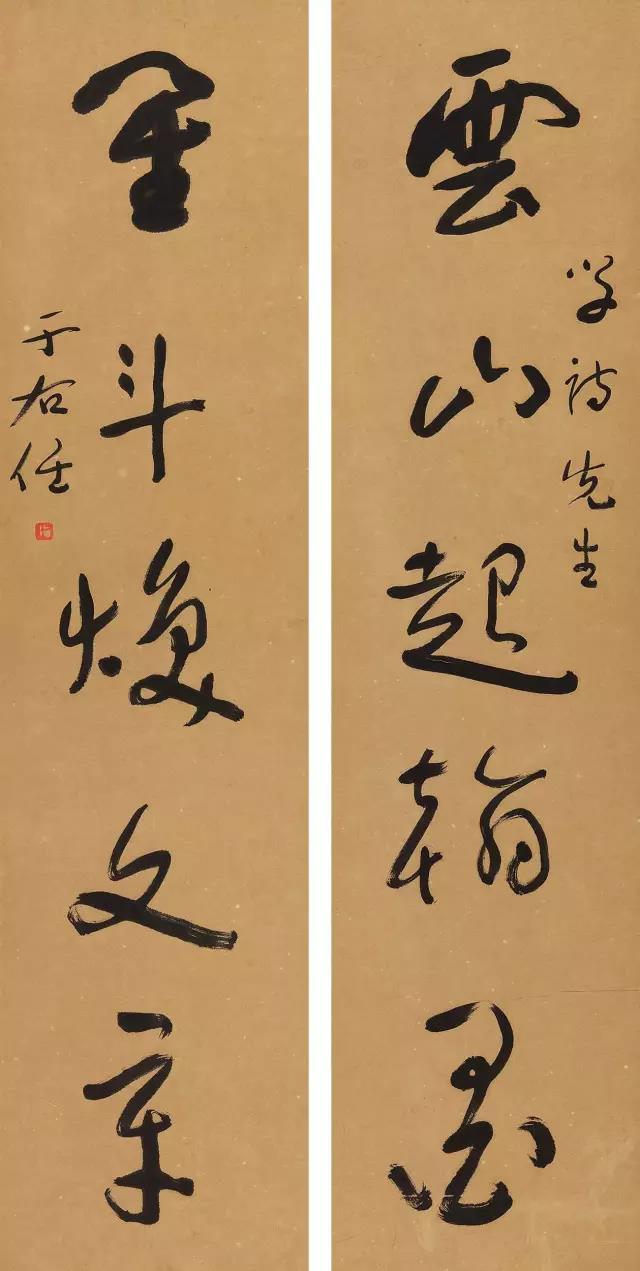 學詩先生
雲山起翰墨
星斗煥文章
于右任